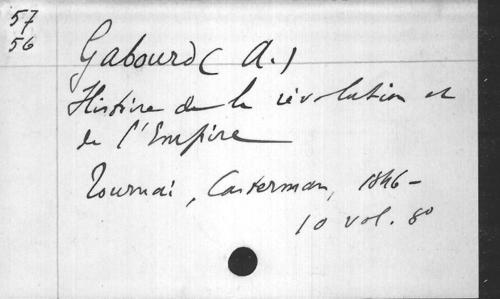 57
56
Gabourd (A.)
Histoire de la révolution et
de l'Empire
Tournai, Casterman, 1846-
10 vol. 8°